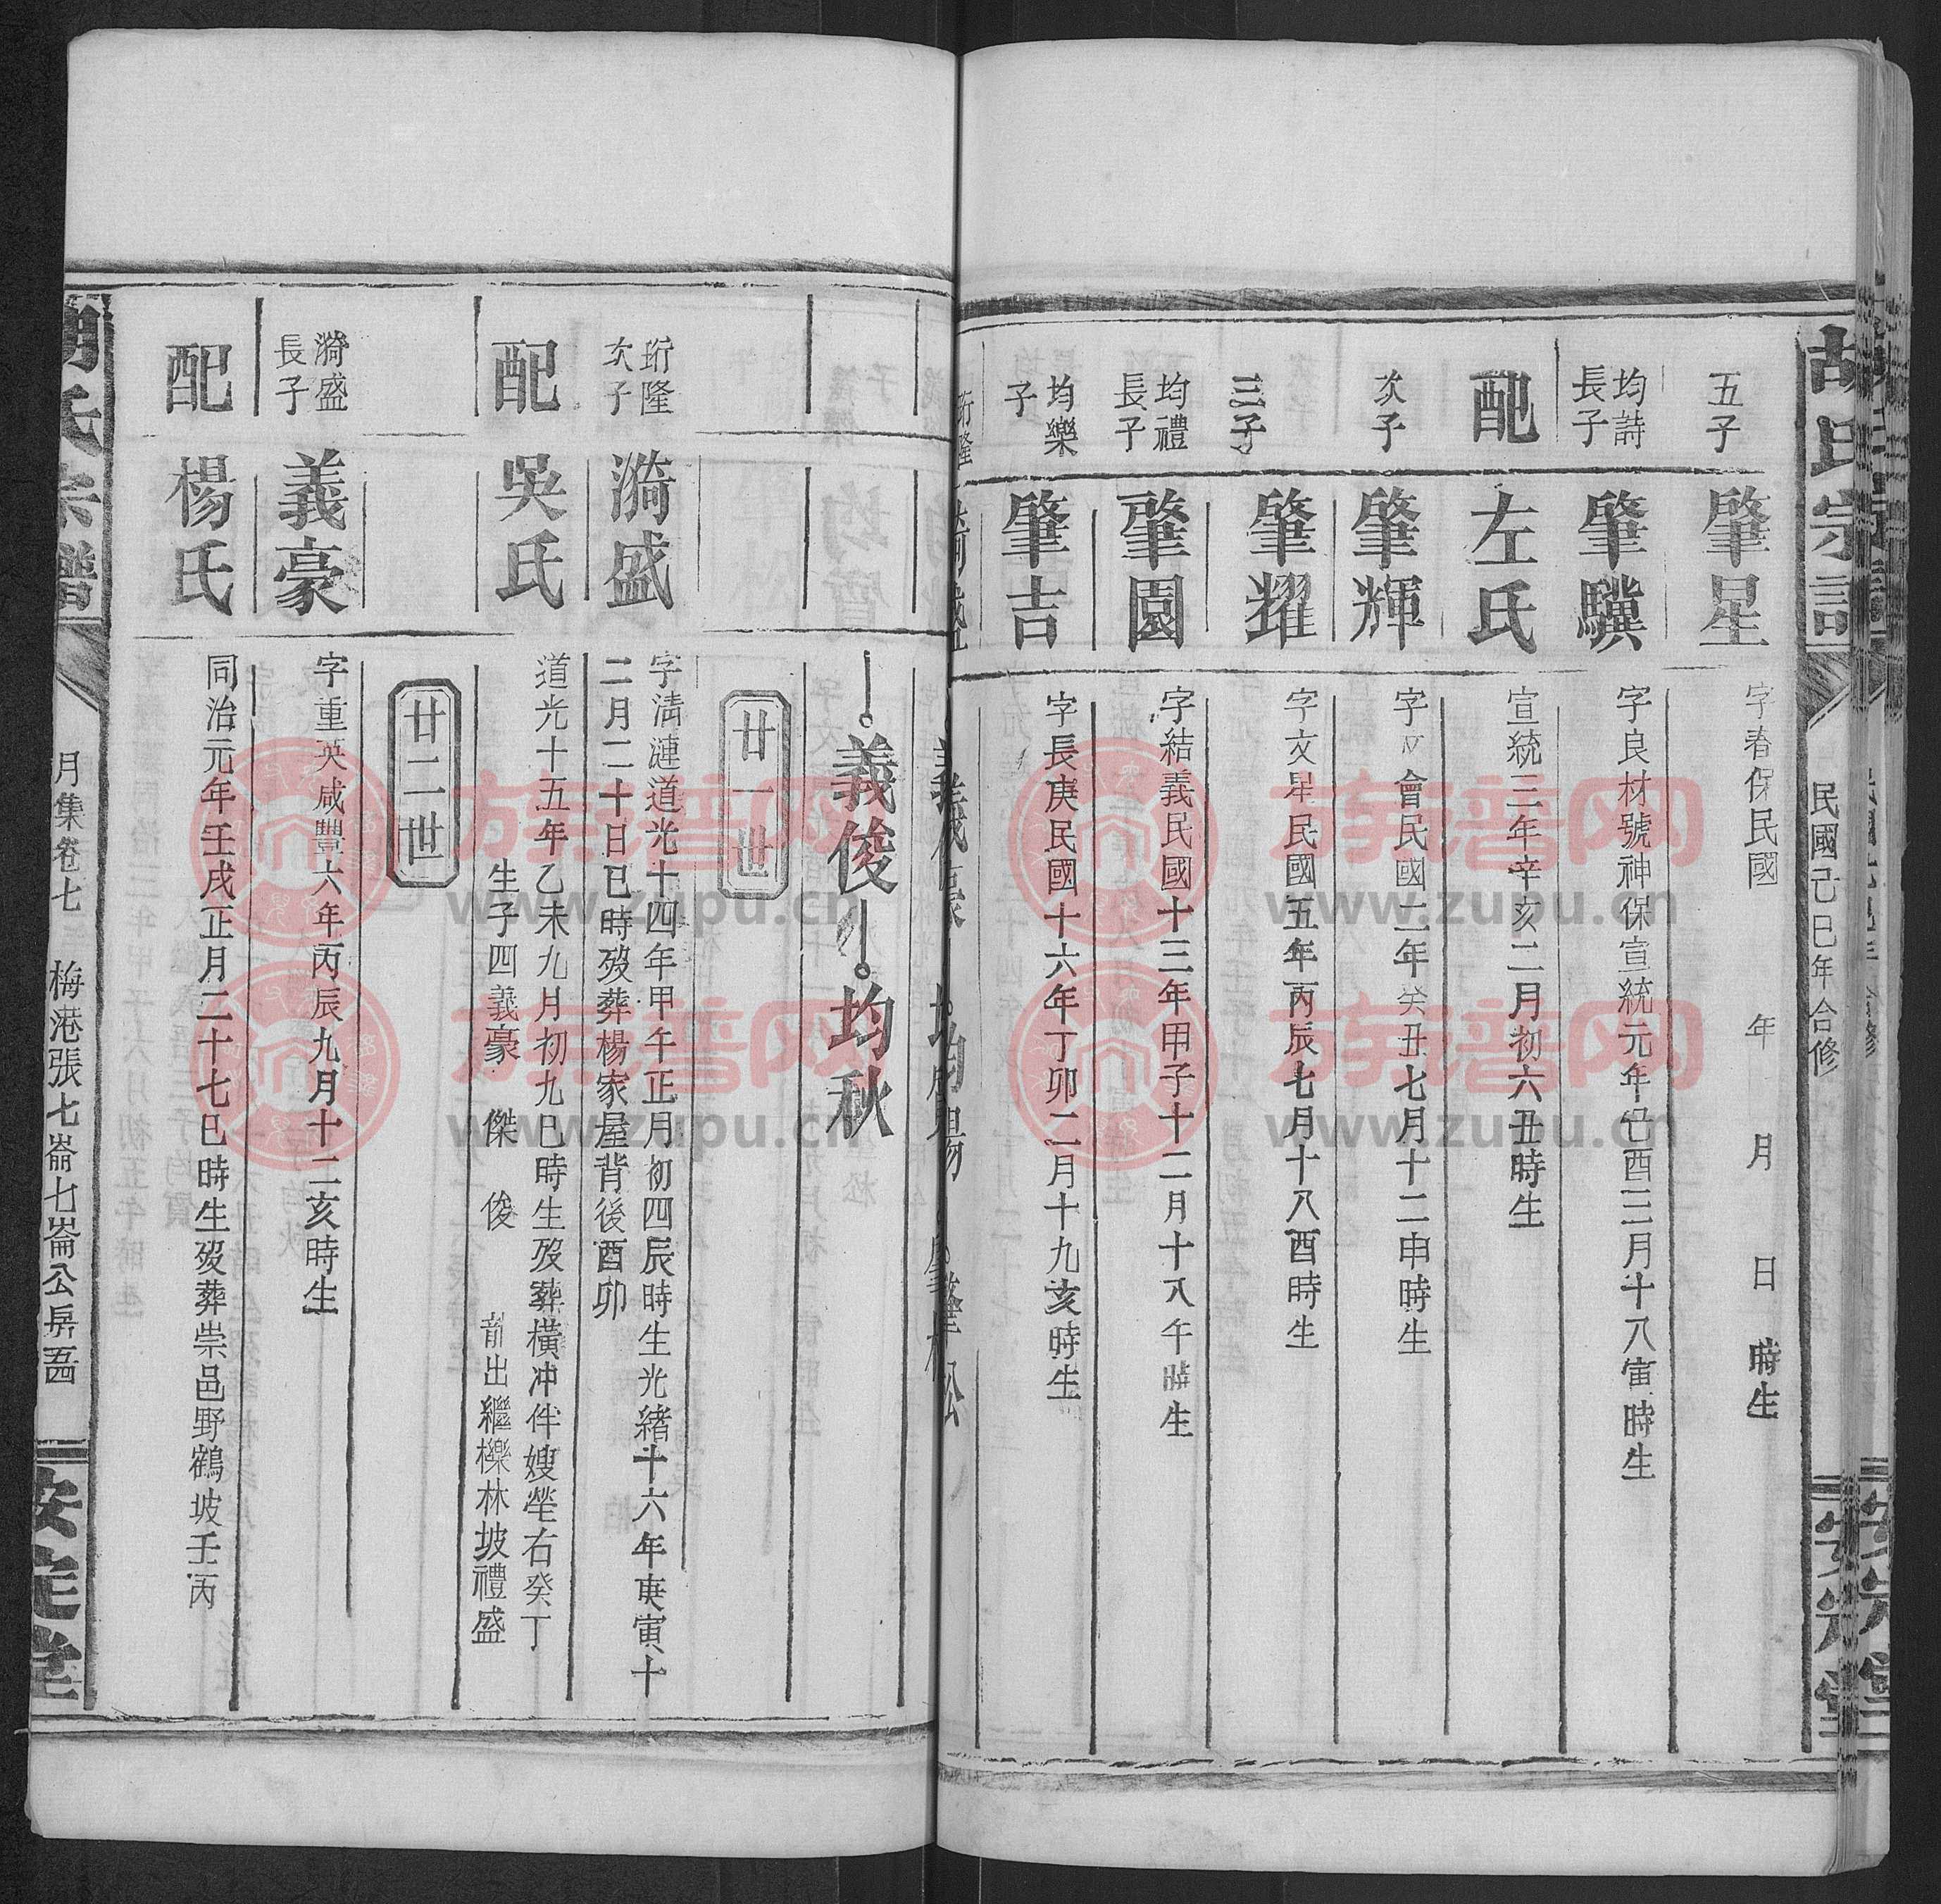 胡氏宗譜
民國己巳年合修
安定堂
五子
肇星
字春保民國 年 月 日 時生
均詩長子
肇驥
字良材號神保宣統元年己酉三月十八寅時生
配
左氏
宣統三年辛亥二月初六丑時生
次子
肇輝
字文會民國二年癸丑七月十二申時生
三子
肇耀
字文星民國五年丙辰七月十八酉時生
均禮長子
肇園
字結義民國十三年甲子十二月十八午時生
均樂子
肇吉
字長庚民國十六年丁卯二月十九亥時生
珩隆
義俊
均秋
廿一世
珩隆次子
漪盛
字淸漣道光十四年甲午正月初四辰時生光緒十六年庚寅十
二月二十日巳時歿葬楊家屋背後酉卯
配
吳氏
道光十五年乙未九月初九巳時生歿葬橫冲伴嫂塋右癸丁
生子四義豪 傑 俊 出繼櫟林坡禮盛
廿二世
漪盛長子
義豪
字重英咸豐六年丙辰九月十二亥時生
配
楊氏
同治元年壬戌正月二十七巳時生歿葬崇邑野鶴坡壬丙
胡氏宗譜
月集卷七 梅港張七崙七崙公房
安定堂
族譜网
www.zupu.cn
族譜网
www.zupu.cn
族譜网
www.zupu.cn
族譜网
www.zupu.cn